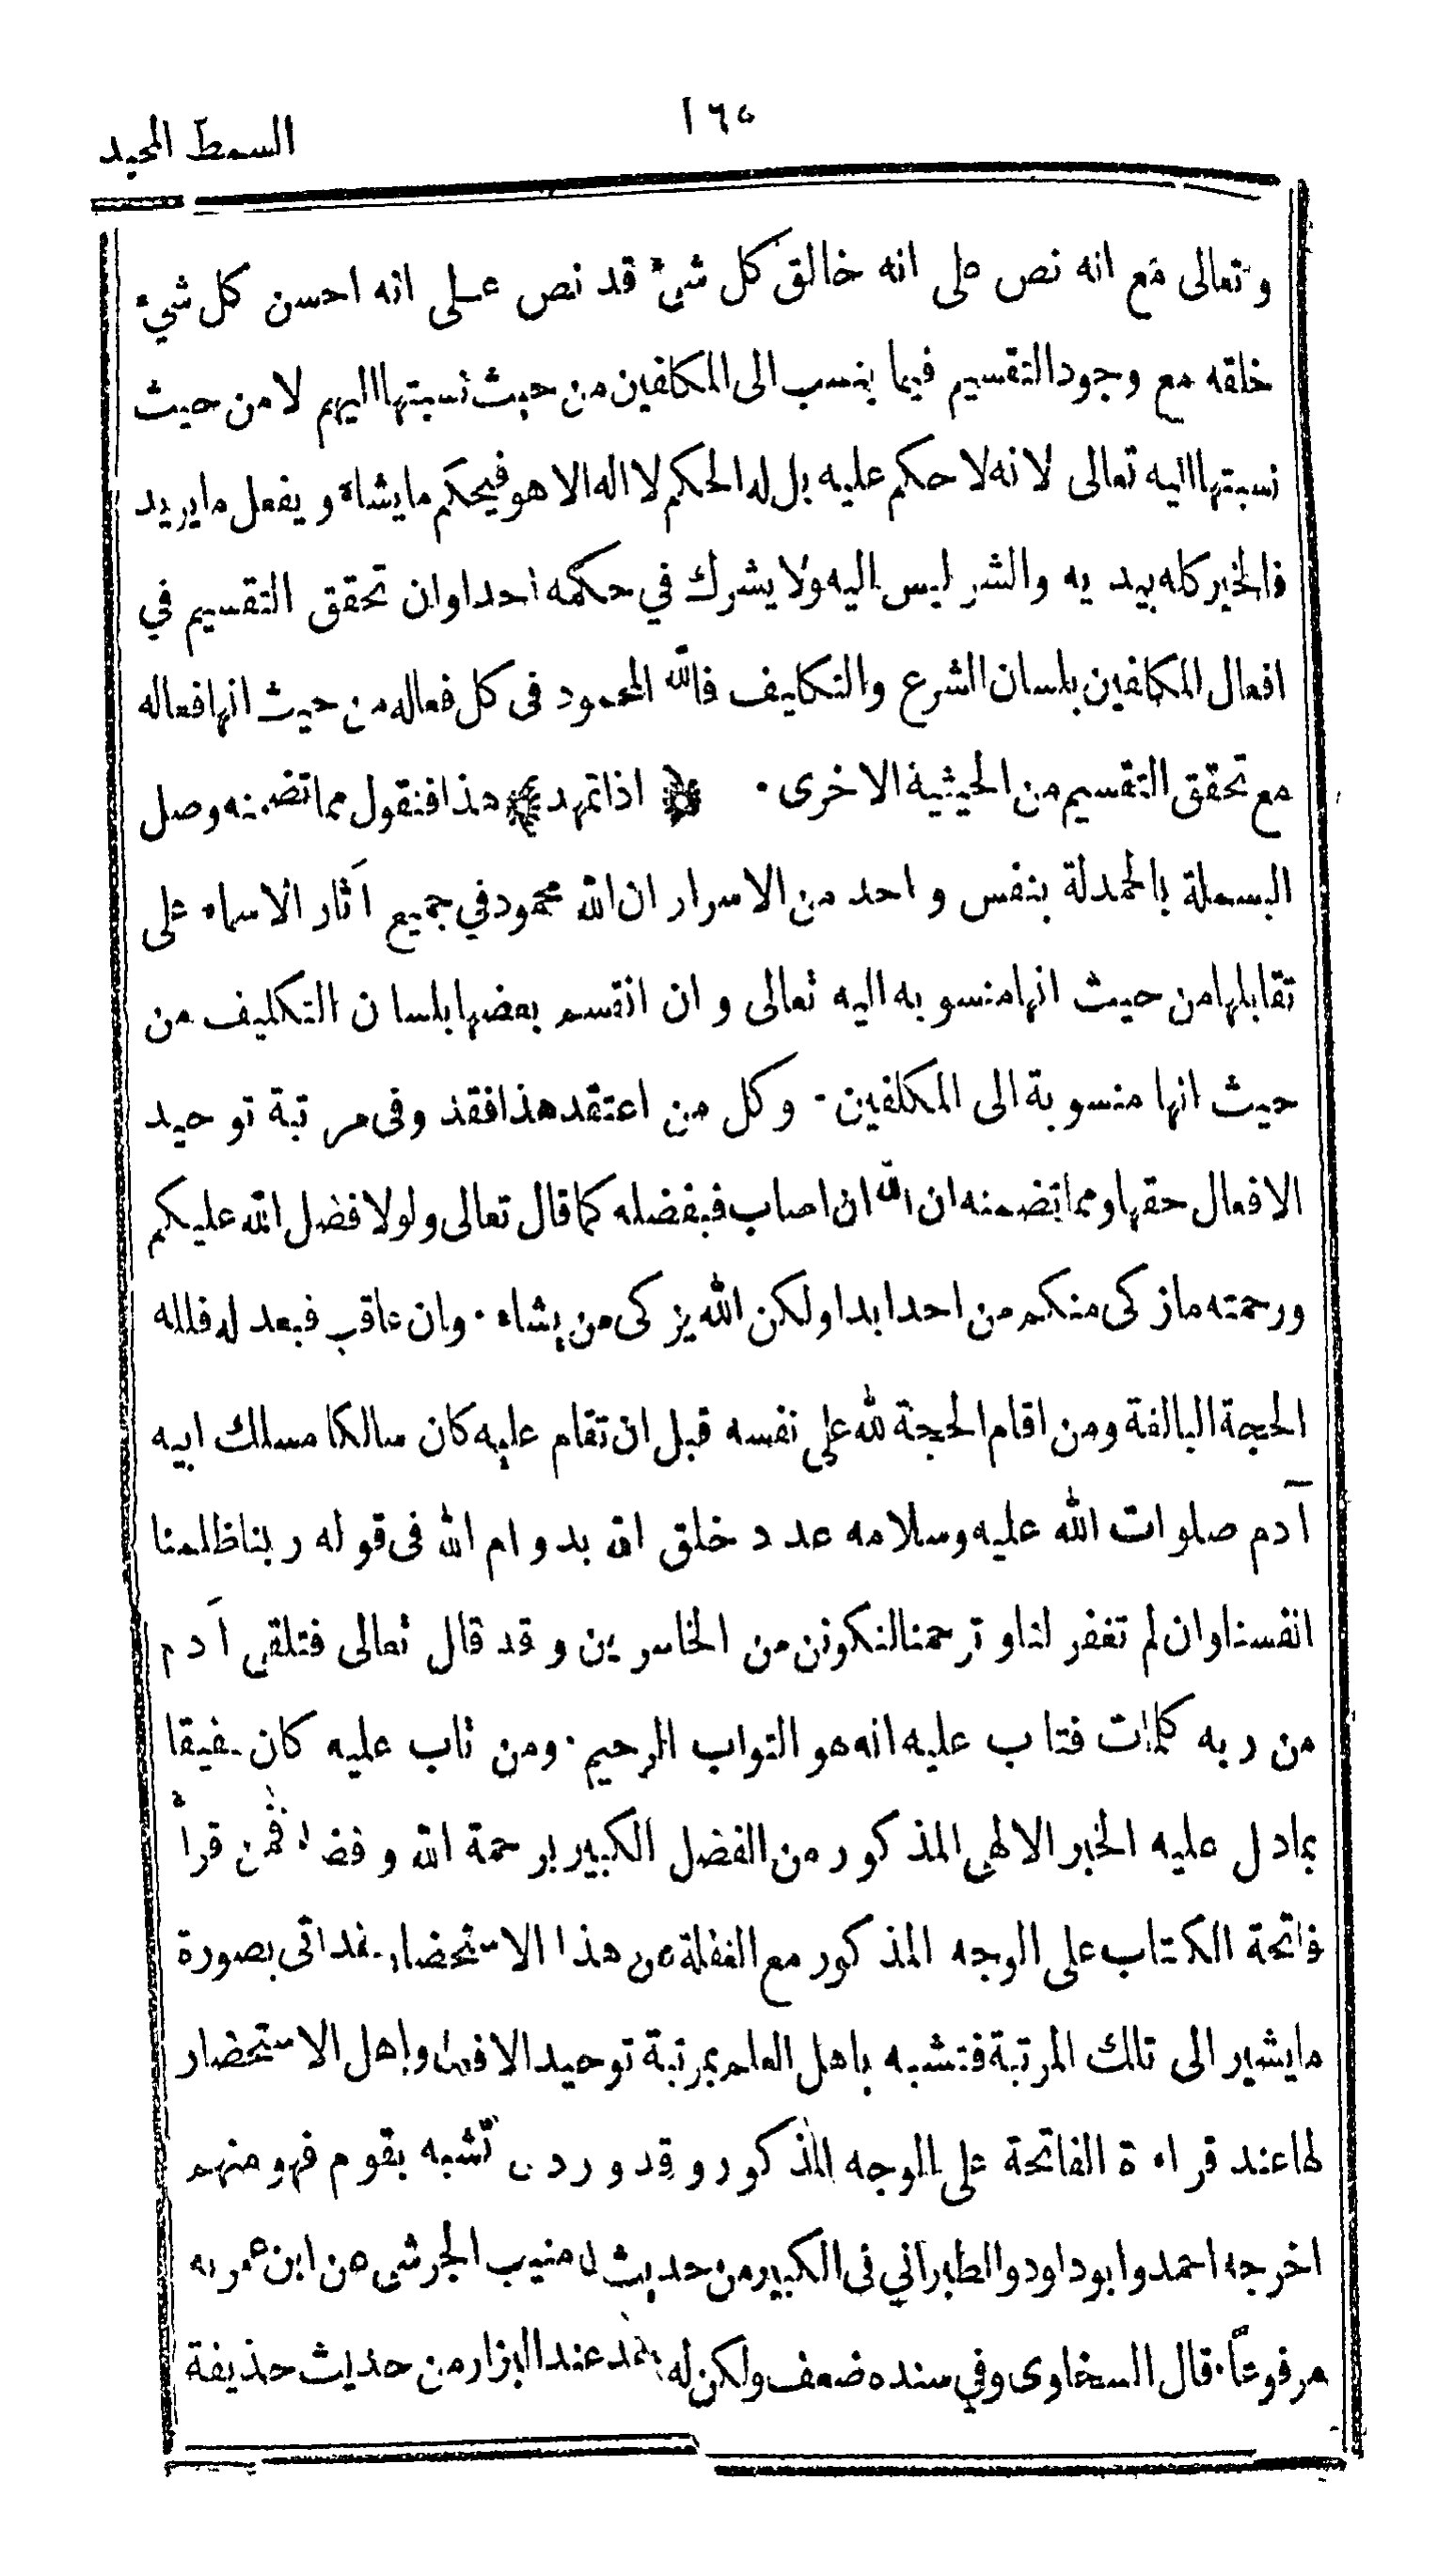 ١٦٥
السمط المجيد
وتعالى مع انه نص على انه خالق كل شيء قد نص عـلى انه احسن كل شيء
خلقه مع وجود التقسيم فيما ينسب الى المكلفين من حيث نسبتها اليهم لا من حيث
نسبتها اليه تعالى لانه لا حكم عليه بل له الحكم لا اله الا هو فيحكم ما يشاء و يفعل ما يريد
فالخير كله بيد يه والشر ليس اليه ولا يشرك في حكمه احدا وان تحقق التقسيم في
افعال المكلفين بلسان الشرع والتكليف فالله المحمود فى كل فعاله من حيث انها فعاله
مع تحقق التقسيم من الحيثية الاخرى ۰ اذا تمهد هذا فنقول مما تضمنه وصل
البسملة بالحمدلة بنفس و احد من الاسرار ان الله محمود في جميع آثار الاسماء على
تقابلها من حيث انها منسو به اليه تعالى و ان انقسم بعضها بلسان التكليف من
حيث انها منسوبة الى المكلفين ۰ وكل من اعتقد هذا فقد وفى مر تبة تو حيد
الافعال حقها ومما تضمنه ان الله ان اصاب فبفضله كما قال تعالى ولولا فضل الله عليكم
ورحمته ما زكى منكم من احد ابدا ولكن الله يز كى من يشاء ۰ وان عاقب فبعد له فلله
الحجة البالغة ومن اقام الحجة لله على نفسه قبل ان تقام عليه كان سالكا مسلك ابيه
آدم صلوات الله عليه وسلامه عدد خلق الله بدوام الله فى قوله ربنا ظلمنا
انفسنا وان لم تغفر لنا و ترحمنا لنكونن من الخاسرين و قد قال تعالى فتلقى آدم
من ربه كلمات فتاب عليه انه هو التواب الرحيم ۰ ومن تاب عليه كان حقيقا
بما دل عليه الخبر الالهي المذكور من الفضل الكبير بر حمة الله و فضله فمن قرأ
فاتحة الكتاب على الوجه المذكور مع الغفلة عن هذا الاستحضار فقد اتى بصورة
ما يشير الى تلك المرتبة فتشبه باهل العلم بمرتبة توحيد الافعال و اهل الاستحضار
لها عند قراءة الفاتحة على الوجه المذكور و قد و رد من تشبه بقوم فهو منهم
اخرجه احمد و ابو داود والطبراني فى الكبير من حديث منيب الجرشى عن ابن عمر به
مرفوعًا ۰ قال السخاوى وفي سنده ضعف ولكن له شاهد عند البزار من حديث حذيفة